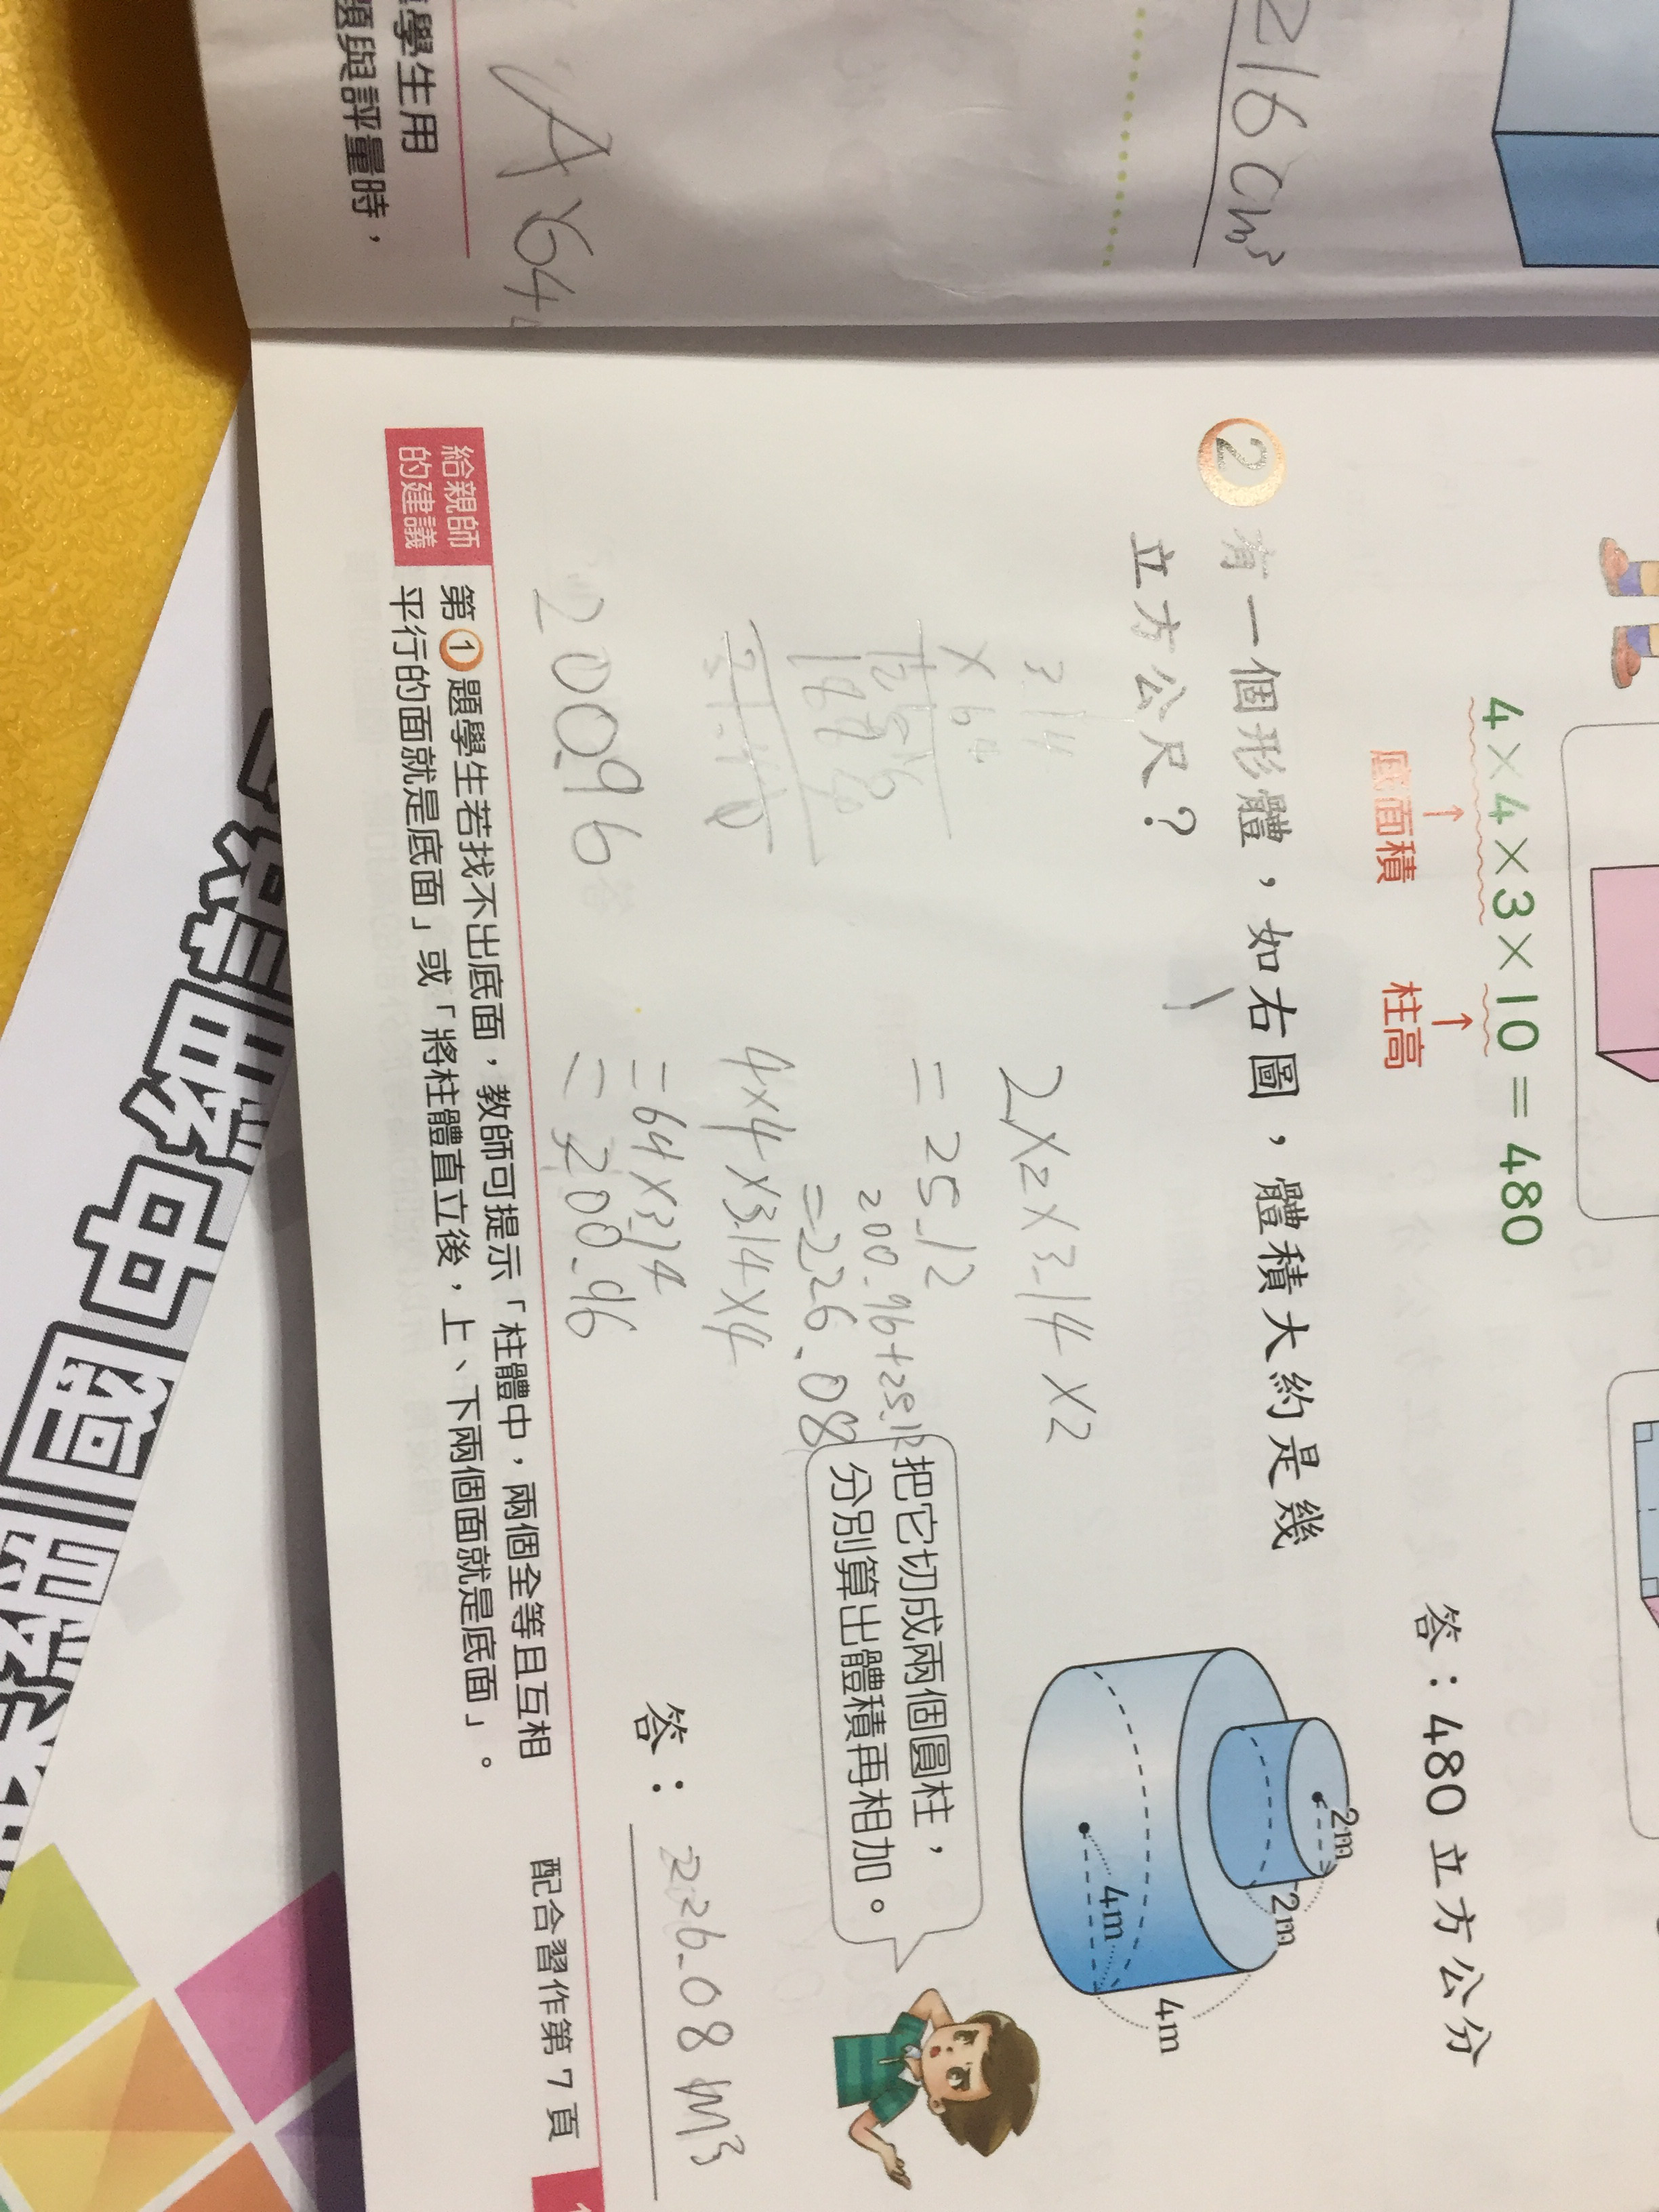 學生用
題與評量時，
A:64
216cm³
4×4×3×10＝480
底面積
柱高
答：480 立方公分
2 有一個形體，如右圖，體積大約是幾
立方公尺？
2m
2m
4m
4m
2×2×3.14×2
=25.12
200.96+25.12
=226.08
4×4×3.14×4
=64×3.14
=200.96
3.14
×64
1256
200.96
把它切成兩個圓柱，
分別算出體積再相加。
答：226.08m³
給親師
的建議
第①題學生若找不出底面，教師可提示「柱體中，兩個全等且互相
平行的面就是底面」或「將柱體直立後，上、下兩個面就是底面」。
配合習作第 7 頁
國中